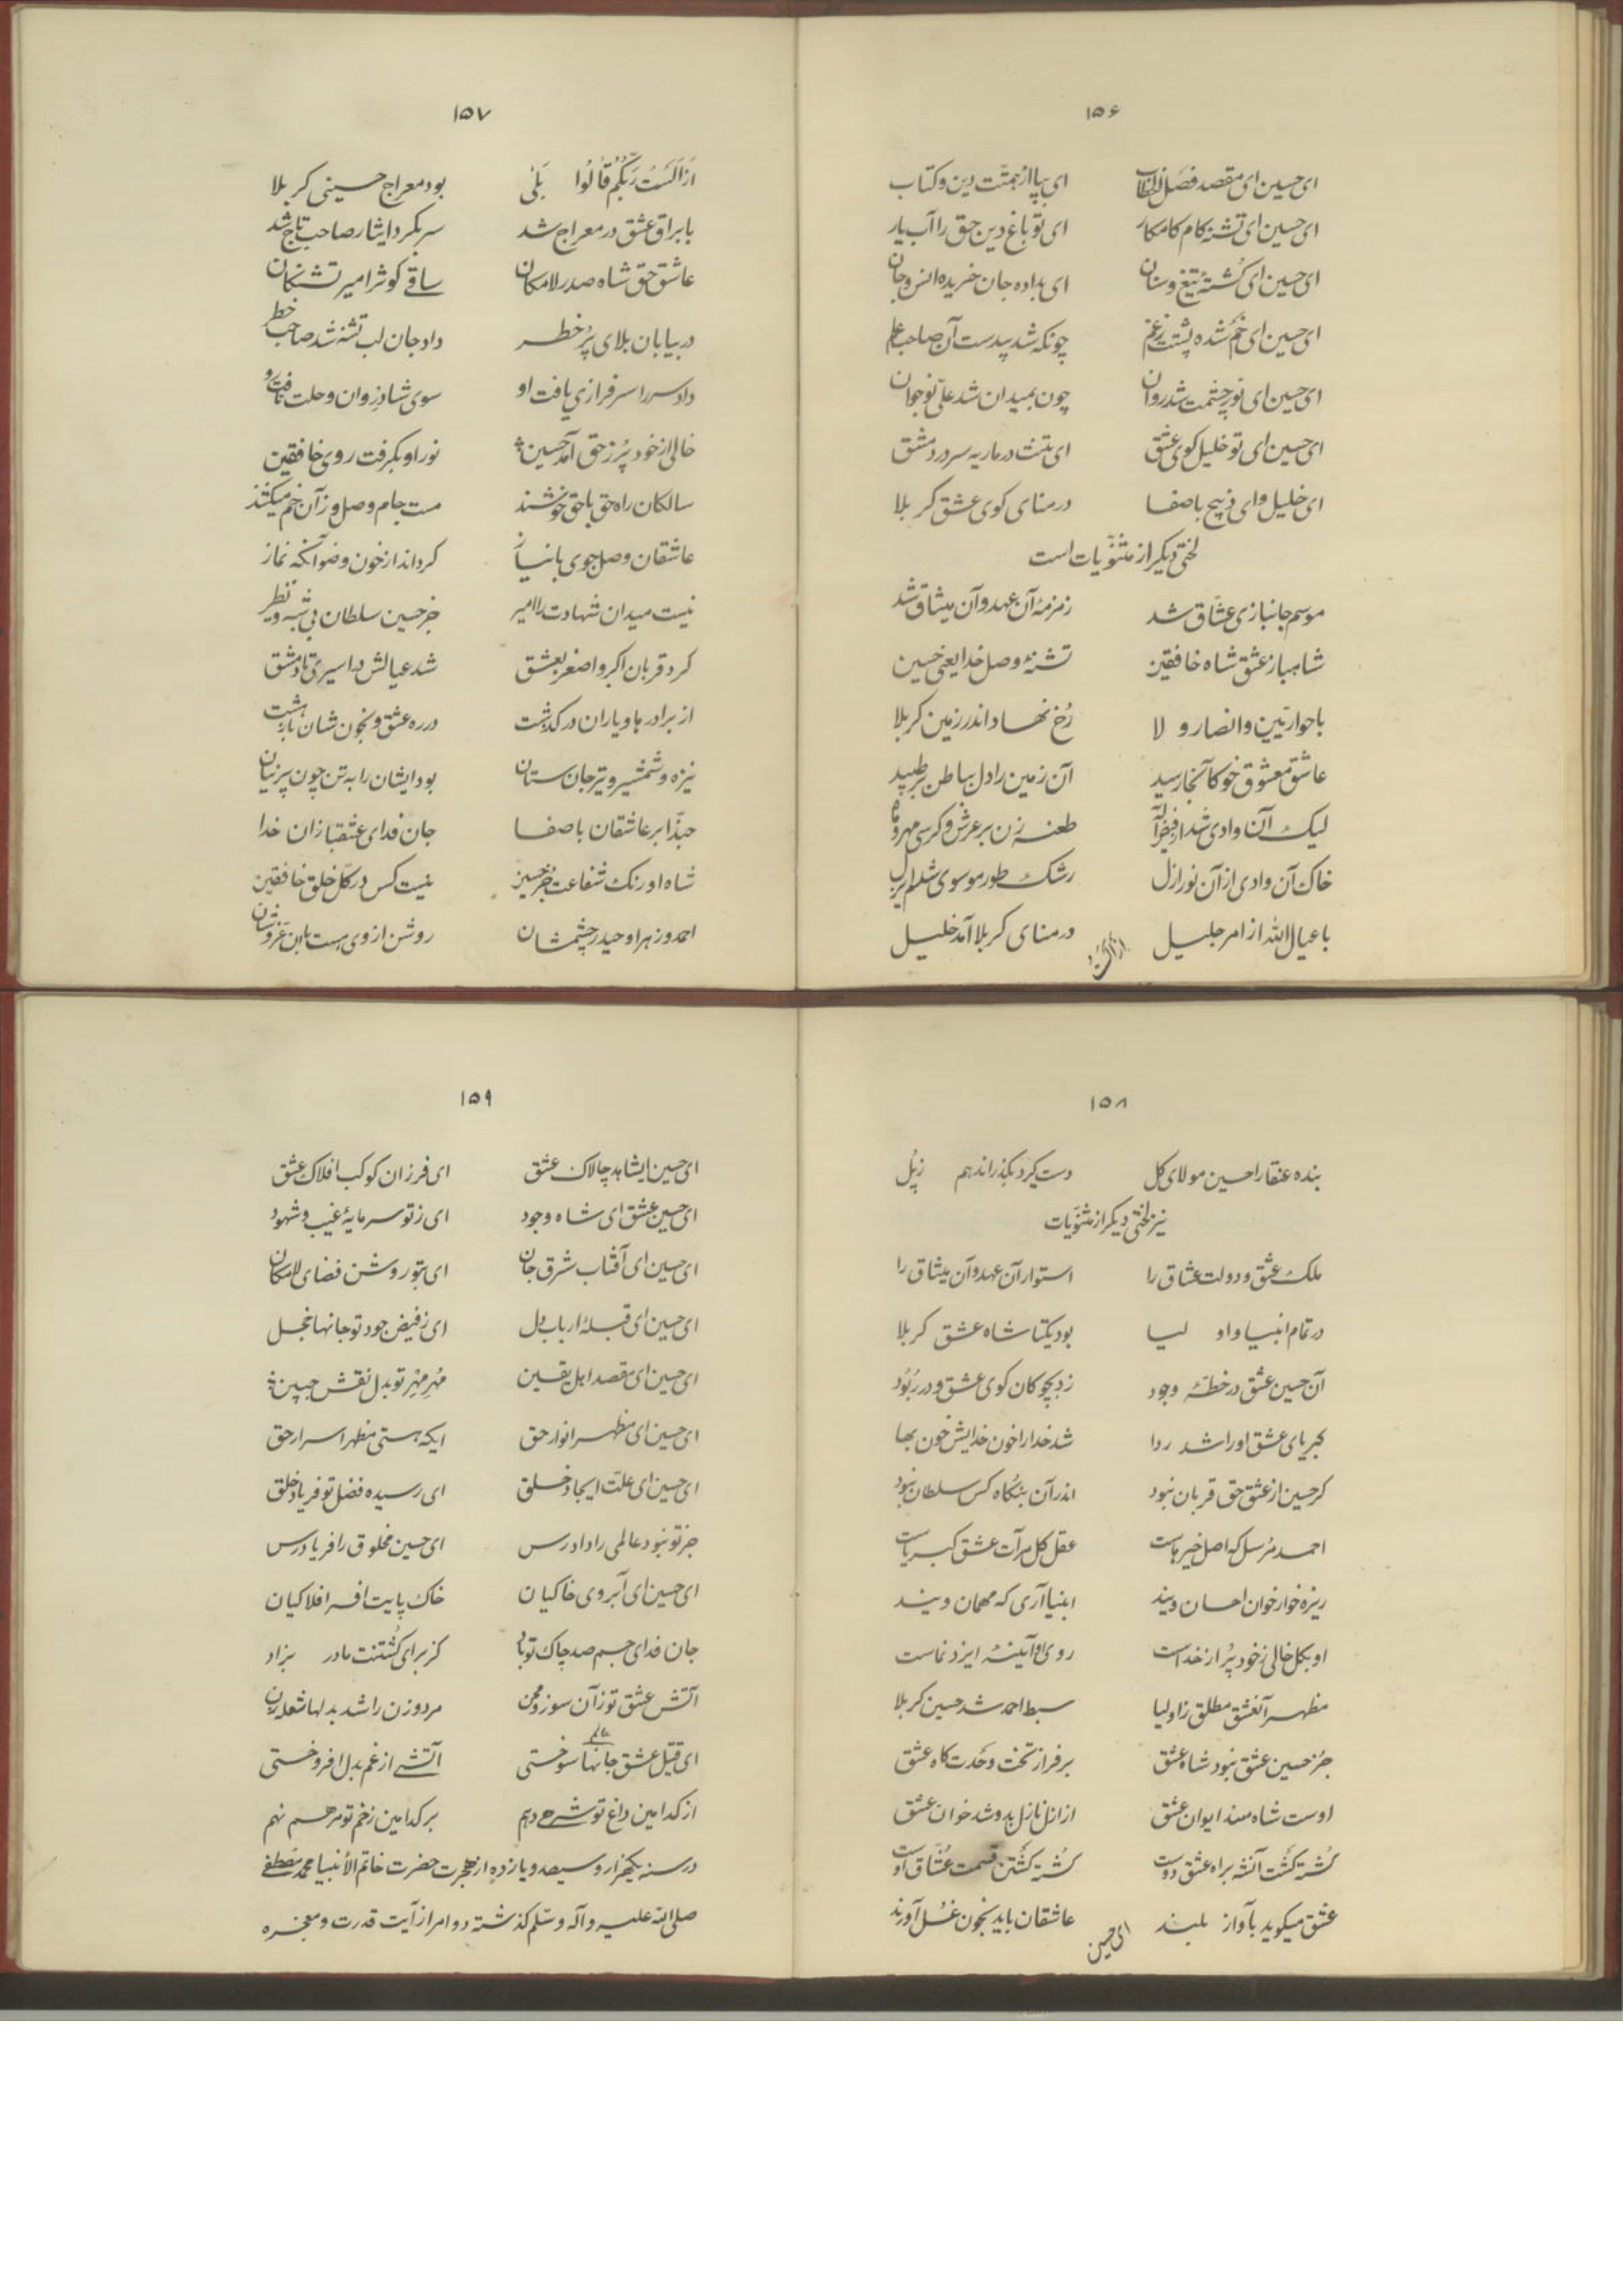 ۱۵۶
ای حسین ای مقصد فصل الخطاب ای بپا از همتت دین و کتاب
ای حسین ای تشنه کام کامکار ای تو باغ دین حق را آب یار
ای حسین ای کُشتهٔ تیغ و سنان ای بداده جان خریده انس و جان
ای حسین ای خم شده پشتت ز غم چونکه شد بیدست آن صاحب علم
ای حسین ای نور چشمت شد روان چون بمیدان شد علیّ نوجوان
ای حسین ای تو خلیل کوی عشق ای تنت در ماریه سر در دمشق
ای خلیل و ای ذبیح باصفا در منای کوی عشق کربلا
لختی دیکر از مثنویّات است
موسم جانبازی عشّاق شد زمزمهٔ آن عهد و آن میثاق شد
شاهباز عشق شاه خافقین تشنهٔ وصل خدا یعنی حسین
با حواریّین و انصار و لا رُخ نهاد اندر زمین کربلا
عاشق معشوق خو کآنجا رسید آن زمین را دل بباطن بر طپید
لیک آن وادی شد از طعنه زن بر عرش و کرسی مهر و ماه
خاک آن وادی از آن نور ازل رشک طور موسوی شد
با عیال الله از امر جلیل در منای کربلا آمد خلیل
از الست
۱۵۷
از اَلَستُ رَبّکُم قالُوا بَلیٰ بود معراج حسینی کربلا
با براق عشق در معراج شد سر بکرد ایثار صاحب تاج شد
عاشق حق شاه صدر لامکان ساقی کوثر امیر تشنکان
در بیابان بلای پُر خطر داد جان لب تشنه شد صاحب خطر
داد سر را سرفرازی یافت او سوی شادروان وحلت تافت رو
خالی از خود پُر ز حق آمد حسین نور او بکرفت روی خافقین
سالکان راه حق با حق خوشند مست جام وصل و زآن خم میکشند
عاشقان وصل جوی با نیاز کرداند از خون وضو آنکه نماز
نیست میدان شهادت را امیر جز حسین سلطان بی شبه و نظیر
کرد قربان اکبر و اصغر بعشق شد عیالش در اسیری تا دمشق
از برادرها و یاران در کذشت در ره عشق و بخون شان باز هشت
نیزه و شمشیر و تیر جان ستان بود ایشان را به تن چون پرنیان
حبّذا بر عاشقان باصفا جان فدای عشقبازان خدا
شاه اورنک شفاعت جز حسین نیست کس در کلّ خلق خافقین
احمد و زهرا و حیدر چشمشان روشن از وی هست با این عزّ و شان
۱۵۸
بنده عنقا را حسین مولای کل دست کیرد بکذراند هم ز پُل
نیز لختی دیکر از مثنویّات
ملک عشق و دولت عشاق را استوار آن عهد و آن میثاق را
در تمام انبیا و اولیا بود یکتا شاه عشق کربلا
آن حسین عشق در خطّهٔ وجود زد بچوکان کوی عشق و در ربُود
کبریای عشق او را شد ردا شد خدا را خون خدایش خون بها
کر حسین از عشق حق قربان نبود اندر آن بنکاه کس سلطان نبود
احمد مُرسل که اصل خیرهاست عقل کل مرآت عشق کبریاست
ریزه خوار خوان احسان ویند انبیا آری که مهمان ویند
او بکل خالی ز خود پُر از خداست روی او آئینهٔ ایزد نماست
مظهر آنعشق مطلق ز اولیا سبط احمد شد حسین کربلا
جُز حسین عشق نبود شاه عشق بر فراز تخت وحدت کاه عشق
اوست شاه مسند ایوان عشق از ازل نازل بدو شد خوان عشق
کُشته کَشت آنشه براه عشق دوست کُشته کَشتن قسمت عُشّاق اوست
عشق میکوید بآواز بلند عاشقان باید بخون غسل آورند
ای حسین
۱۵۹
ای حسین ایشاهد چالاک عشق ای فرزان کوکب افلاک عشق
ای حسین عشق ای شاه وجود ای ز تو سرمایهٔ غیب و شهود
ای حسین ای آفتاب شرق جان ای بتو روشن فضای لامکان
ای حسین ای قبلهٔ ارباب دل ای ز فیض جود تو جانها خجل
ای حسین ای مقصد اهل یقین مُهر مِهر تو بدل نقش جبین
ای حسین ای مظهر انوار حق ایکه هستی مظهر اسرار حق
ای حسین ای علّت ایجاد خلق ای رسیده فضل تو فریاد خلق
جز تو نبود عالمی را دادرس ای حسین مخلوق را فریادرس
ای حسین ای آبروی خاکیان خاک پایت افسر افلاکیان
جان فدای جسم صد چاک تو باد کز برای کُشتنت مادر بزاد
آتش عشق تو زآن سوز و محن مرد و زن را شد بدلها شعله زن
ای قتیل عشق جانها سوختی آتشی از غم بدل افروختی
عالم
از کدامین داغ تو شرح دهم بر کدامین زخم تو مرهم نهم
در سنه یکهزار و سیصد و یازده از هجرت حضرت خاتم الأنبیا محمد مصطفی
صلی الله علیه و آله و سلّم کذشته دو امر از آیت قدرت و معجزه